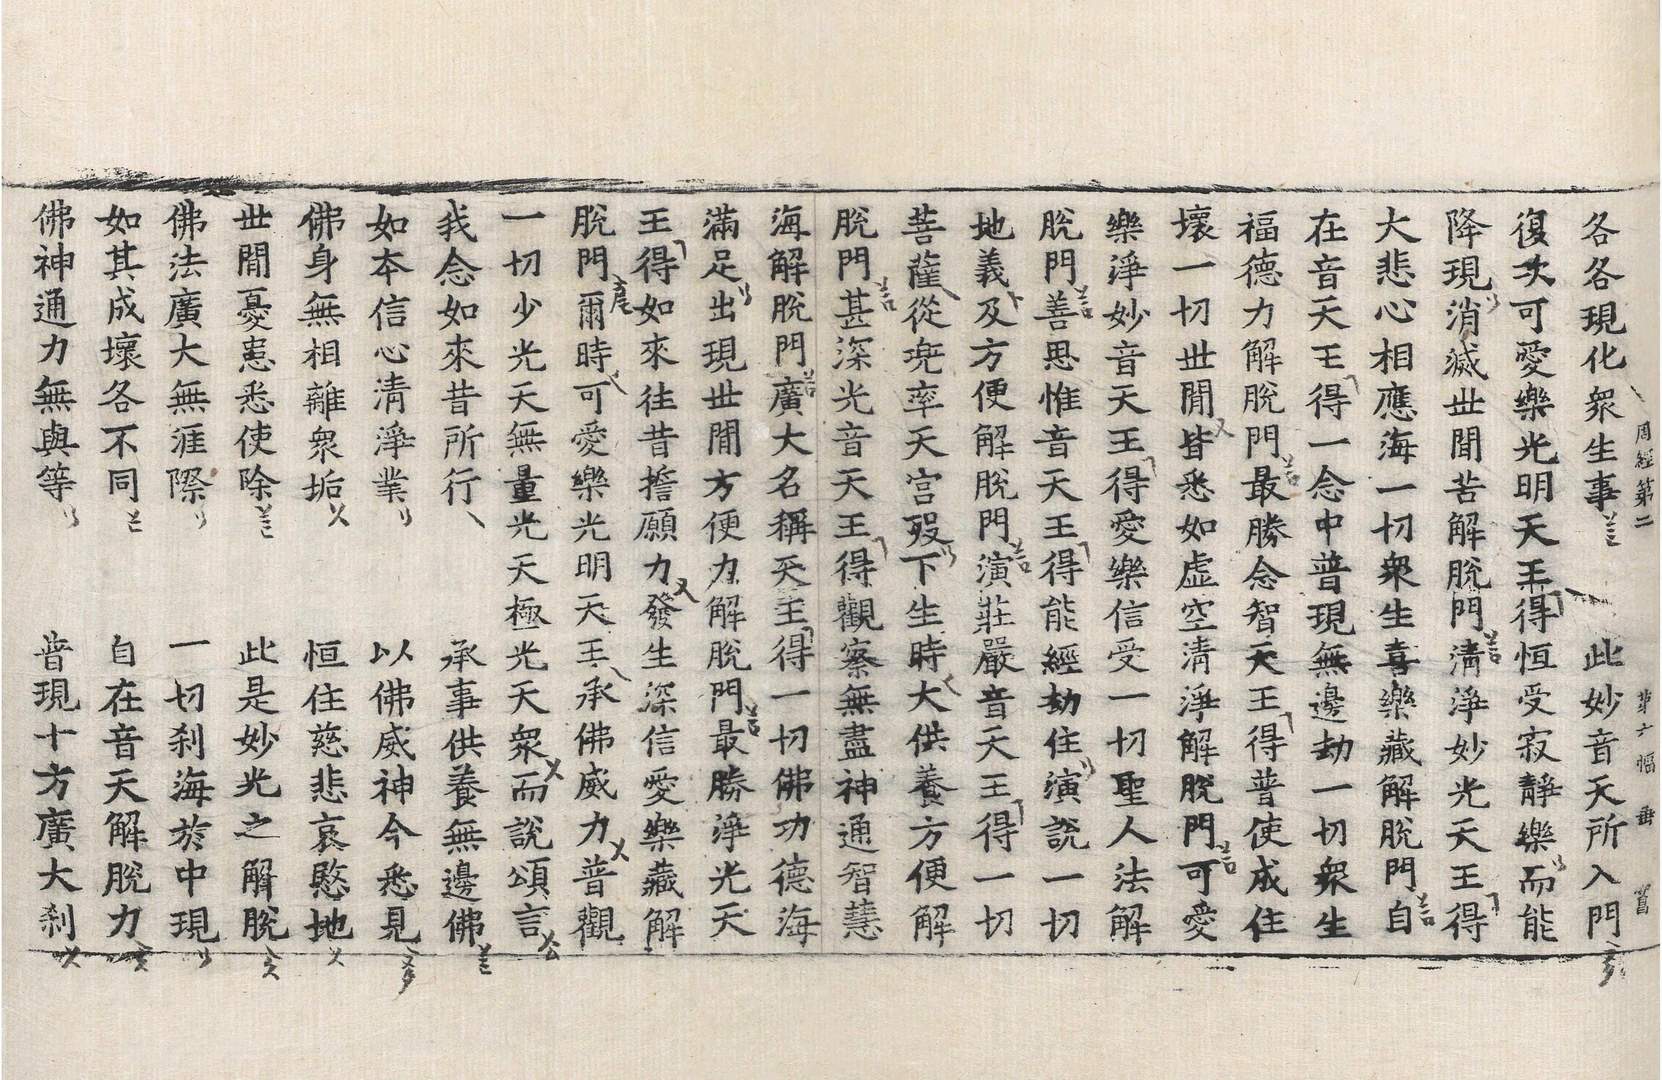 各各現化衆生事 此妙音天所入門
周經第二 第六幅
復次可愛樂光明天王得恒受寂靜樂而能
降現消滅世閒苦解脫門清淨妙光天王得
大悲心相應海一切衆生喜樂藏解脫門自
在音天王得一念中普現無邊劫一切衆生
福德力解脫門最勝念智天王得普使成住
壞一切世閒皆悉如虛空清淨解脫門可愛
樂淨妙音天王得愛樂信受一切聖人法解
脫門善思惟音天王得能經劫住演說一切
地義及方便解脫門演莊嚴音天王得一切
菩薩從兜率天宮歿下生時大供養方便解
脫門甚深光音天王得觀察無盡神通智慧
海解脫門廣大名稱天王得一切佛功德海
滿足出現世閒方便力解脫門最勝淨光天
王得如來往昔誓願力發生深信愛樂藏解
脫門爾時可愛樂光明天王承佛威力普觀
一切少光天無量光天極光天衆而說頌言
我念如來昔所行 承事供養無邊佛
如本信心清淨業 以佛威神今悉見
佛身無相離衆垢 恒住慈悲哀愍地
世閒憂患悉使除 此是妙光之解脫
佛法廣大無涯際 一切刹海於中現
如其成壞各不同 自在音天解脫力
佛神通力無與等 普現十方廣大刹